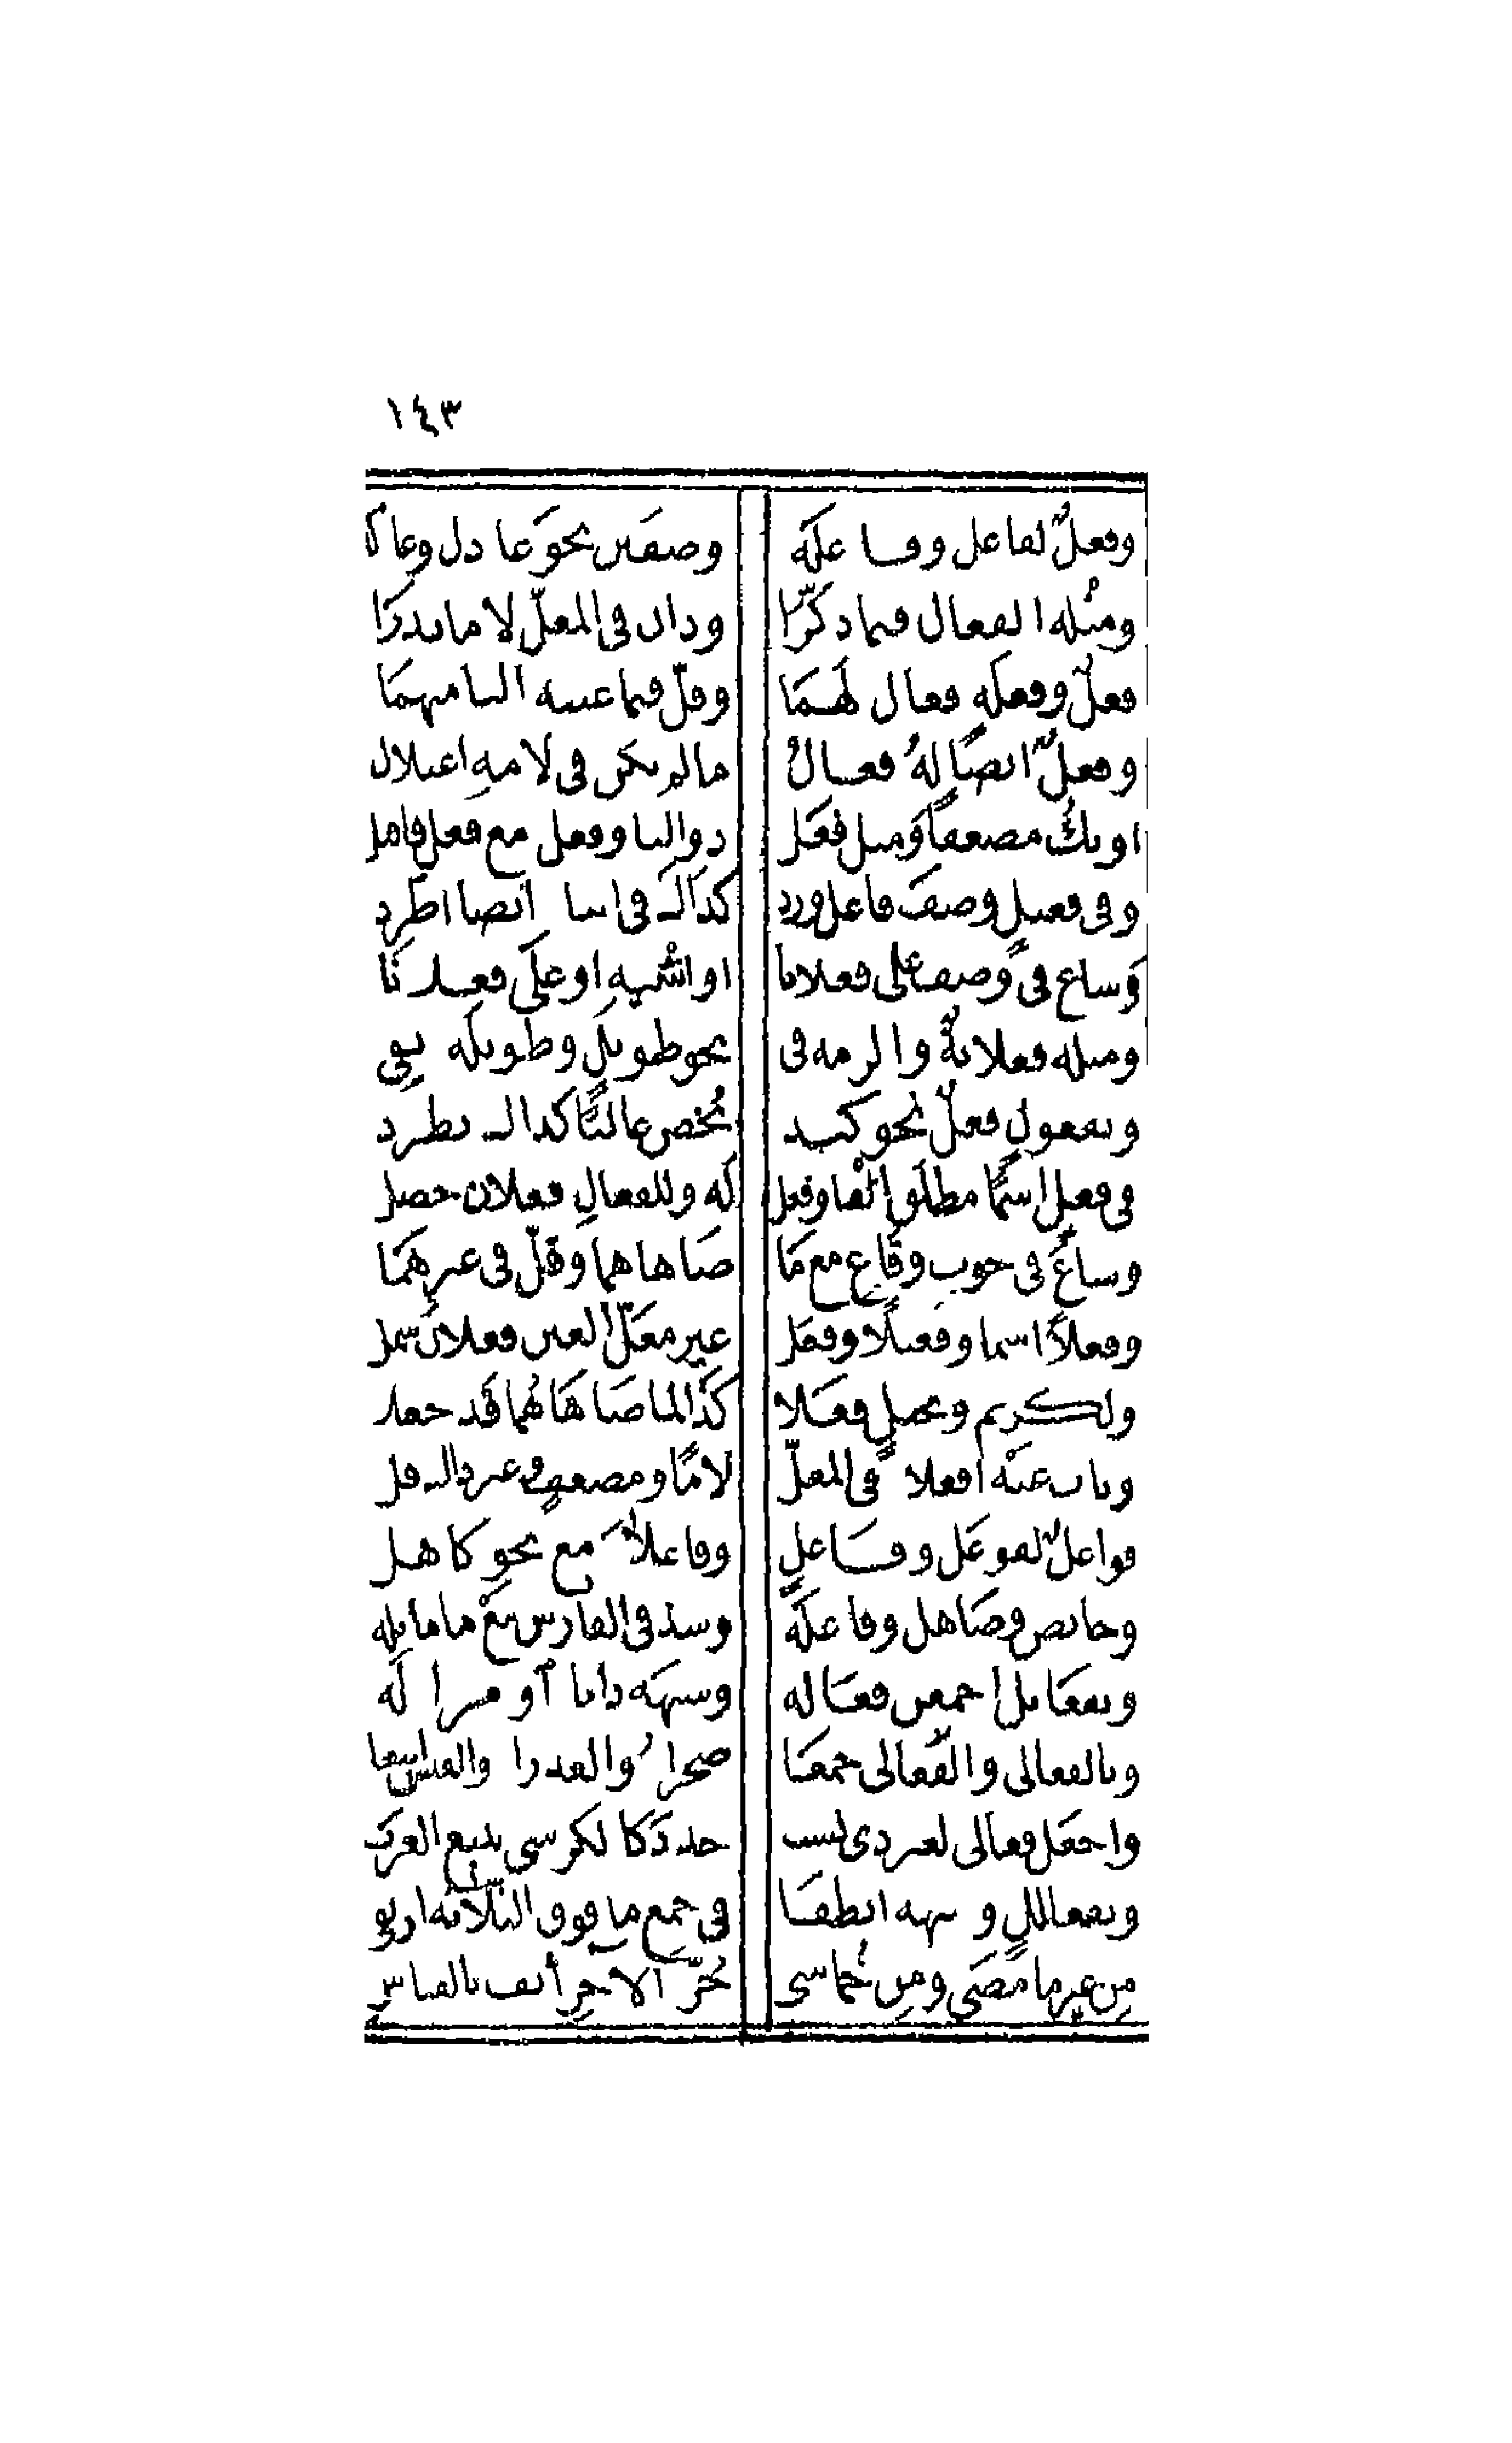 ١٤٣
وفعل لفاعل وفاعله وصفين نحو عاذل وعاذله
ومثله الفعال فيما ذكرا وذان في المعل لاما ندرا
فعل وفعله فعال لهما وقل فيما عينه اليا منهما
وفعل ايضا له فعال ما لم يكن في لامه اعتلال
او يك مضعفا ومثل فعل ذو التا وفعل مع فعل فاقبل
وفي فعيل وصف فاعل ورد كذاك في انثا ايضا اطرد
وشاع في وصف على فعلانا او انثييه او على فعلانا
ومثله فعلانة والزمه في نحو طويل وطويله تفي
وبفعول فعل نحو كبد يخص غالبا كذاك يطرد
في فعل اسما مطلق الفا وفعل له وللفعال فعلان حصل
وشاع في حوت وقاع مع ما ضاهاهما وقل في غيرهما
وفعلا اسما وفعيلا وفعل غير معل العين فعلان شمل
ولكريم وبخيل فعلا كذا لما ضاهاهما قد جعلا
وناب عنه افعلا في المعل لاما ومضعف وغير ذاك قل
فواعل لفوعل وفاعل وفاعلاء مع نحو كاهل
وحائض وصاهل وفاعله وشذ في الفارس مع ما ماثله
وبفعائل اجمعن فعاله وشبهه ذا تا او مزاله
وبالفعالي والفعالى جمعا صحراء والعذرا والقيس اتبعا
واجعل فعالي لغير ذي نسب جدد كالكرسي تتبع العرب
وبفعالل وشبهه انطقا في جمع ما فوق الثلاثة ارتقى
من غير ما مضى ومن خماسي جرد الاخر انف بالقياس